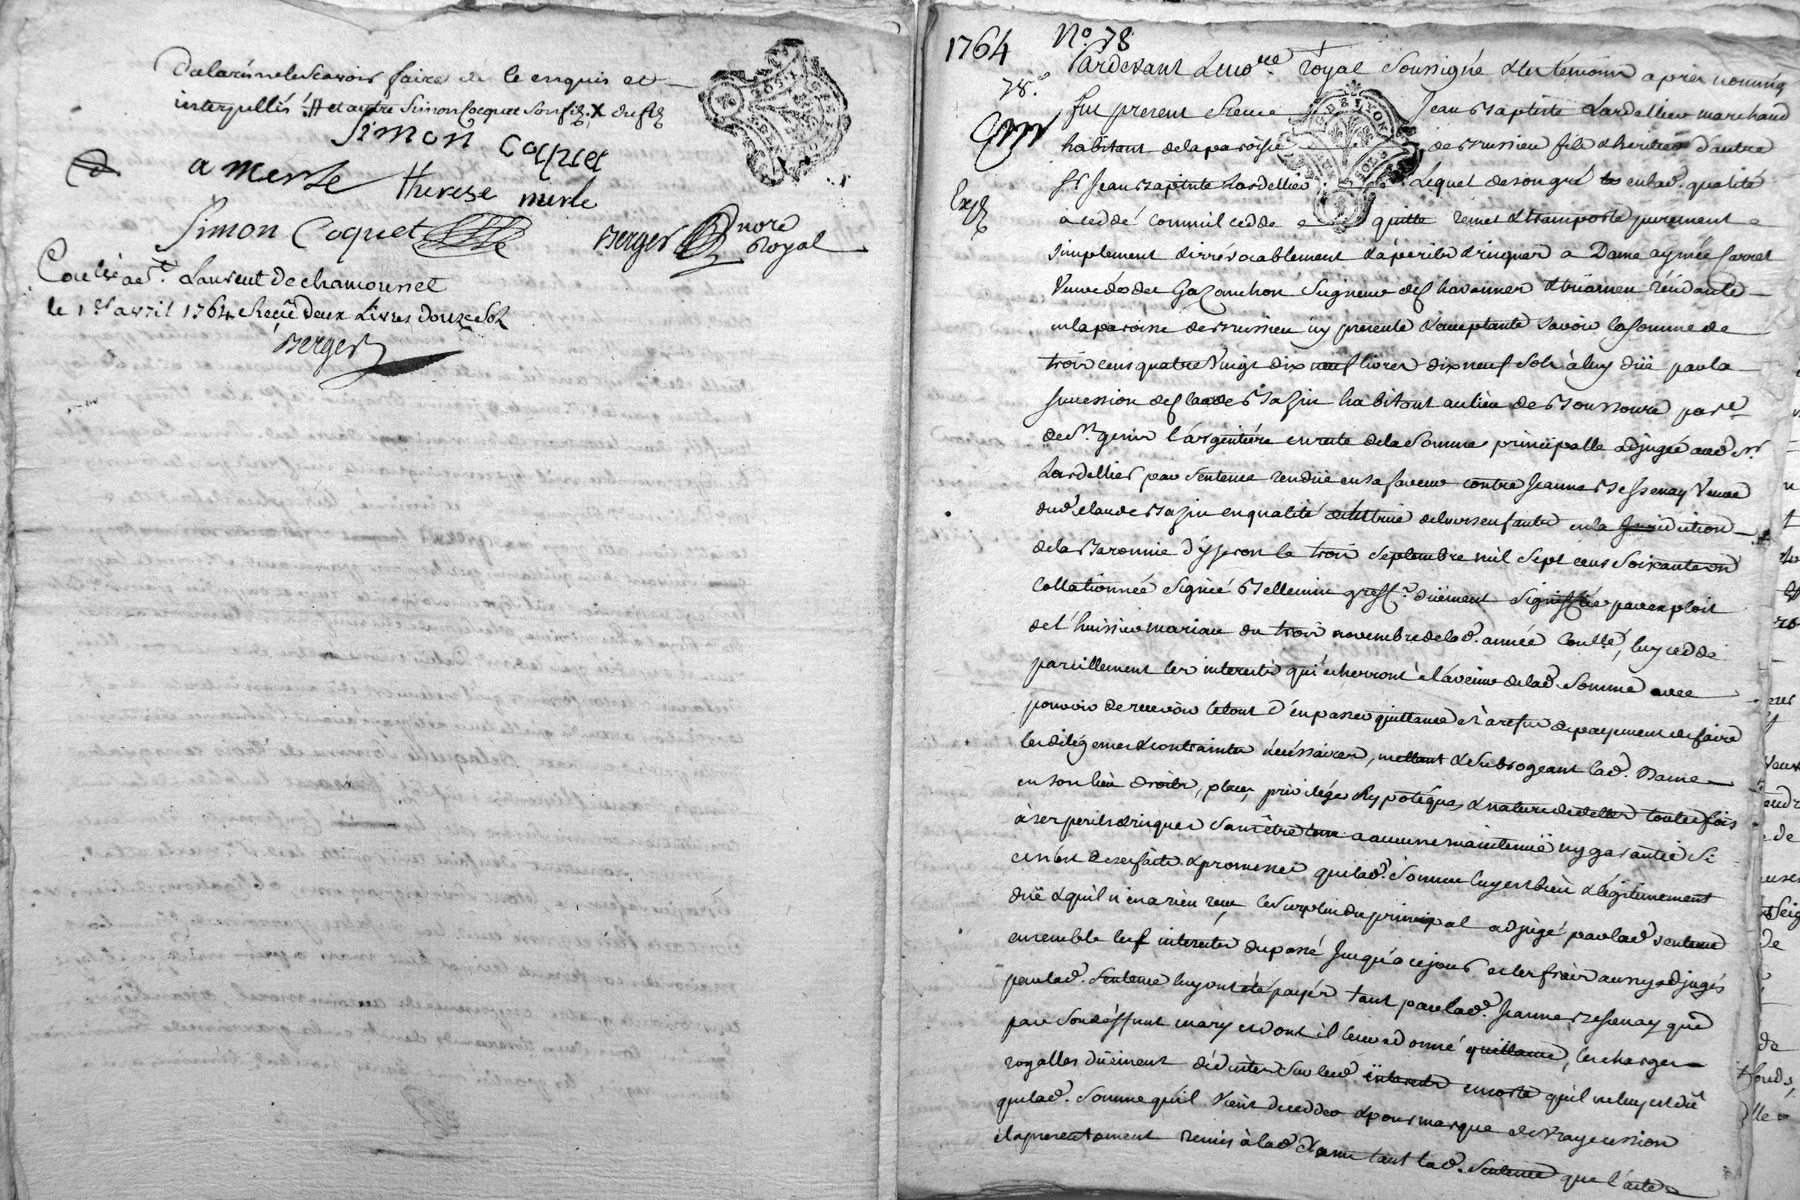 de la rénelesçavoir faire de le enquis et
interpellés # et autre Simon Cocquet son fiz X du fiz
Simon Coquet
a merle therese merle
Simon Coquet Berger nore Royal
Conllé a St Laurent de chamousset
le 1er avril 1764 Reçü deux Livres douze Solz
Berger
1764 No. 78
78.e Pardevant Le no.re Royal Soussigné & les témoins après nommés
fut present Sieur Jean Baptiste Lardellier marchand
habitant de la paroisse de Brussieu fils & héritier d'autre
Expé Sr Jean Baptiste Lardellier Lequel de son gré en lad. qualité
a ceddé comm'il cedde quitte remet & transporte purement e
simplement & irrévocablement & à périls & risques a Dame aymée
Veuve de Gazanchon Seigneur des havannes résidante
en la paroisse de Brussieu icy présente & acceptante savoir la somme de
trois cens quatre vingt dix neuf livres dix neuf sols à luy düe par la
succession de Claude Bazin habitant au lieu de Boussoure par.e
de St genis l'argentière en reste de la Somme principalle adjugée aud. Sr
Lardellier par Sentence rendüe en sa faveur contre Jeanne Bessenay Veuve
dud. Claude Bazin en qualité de leurs enfants en la Juridiction
de la Baronnie d'yzeron le trois Septembre mil Sept cens Soixante
collationnée Signée Bellemin greff.r düement Signiffiée par exploit
de l'huissier mariau du trois novembre de lad. année Contllé, luy cedde
pareillement les interests qui écherront à l'avenir de lad. Somme avec
pouvoir de recevoir le tout d'en passer quittance et à refus de payement de faire
les diligences & contraintes nécéssaires, mettant & Subrogeant lad. Dame
en son lieu droits, place, privilége hypotéques & nature de dettes toutes fois
à ses perils & risques Sans être tenu a aucune maintenüe ny garantie Si
ce n'est de ses faits & promesses que lad. Somme luy est bien & légitimement
düe & qu'il n'en a rien reçu le Surplus du principal adjugé par lad. Sentence
ensemble les interests du passé Jusqu'à ce jour et les frais aussy adjugés
par lad. Sentence luy ont été payés tant par lad. Jeanne Bessenay que
par Son deffunt mary et dont il leur a donné quittance, les charges
royalles düement déduites Sur lesd. interests en sorte qu'il ne luy est dü
que lad. Somme qu'il vient de cedder & pour marque de vraye cession
il a presentement remis à lad. Dame tant lad. Sentence que l'acte